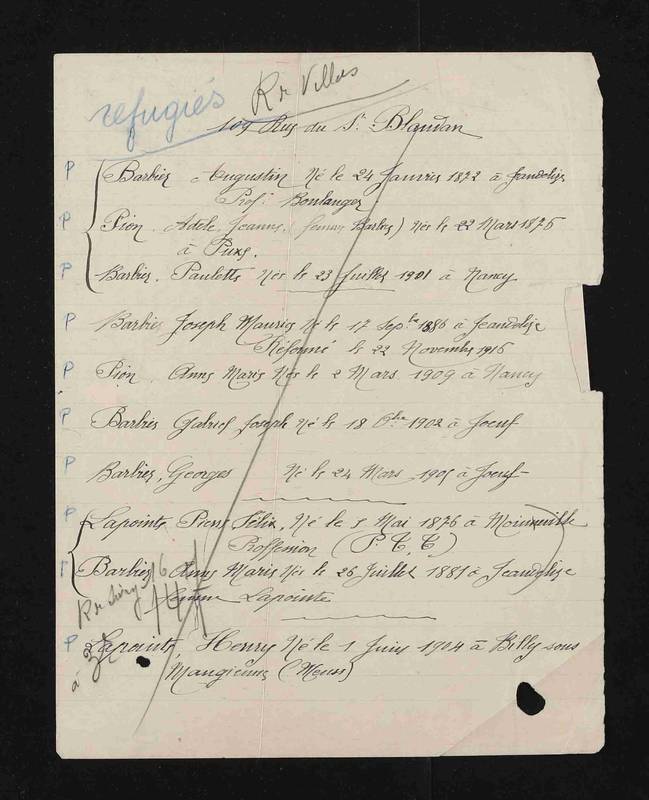 refugiés
Rr Villers
109 Rue du St Blandan
P Barbier Augustin Né le 24 Janvier 1872 à Jeandelize
Prof. Boulanger
P Pion. Adèle Jeanne, (femme Barbier) Née le 22 Mars 1876
à Puxe.
P Barbier. Paulette Née le 23 Juillet 1901 à Nancy
P Barbier Joseph Maurice Né le 17 Sepbre 1886 à Jeandelize
Réformé le 22 Novembre 1916
P Pion Anne Marie Née le 2 Mars 1909 à Nancy
P Barbier Gabriel Joseph Né le 18 1902 à Joeuf
P Barbier, Georges Né le 24 Mars 1905 à Joeuf
P Lapointe, Pierre Félix, Né le 5 Mai 1876 à Moineville
Proffession (P. T. T.)
P Barbier Anne Marie Née le 26 Juillet 1881 à Jeandelize
femme Lapointe
Rr 16
P Lapointe, Henry Né le 1 Juin 1904 à Billy sous
à
Mangiennes (Meuse)